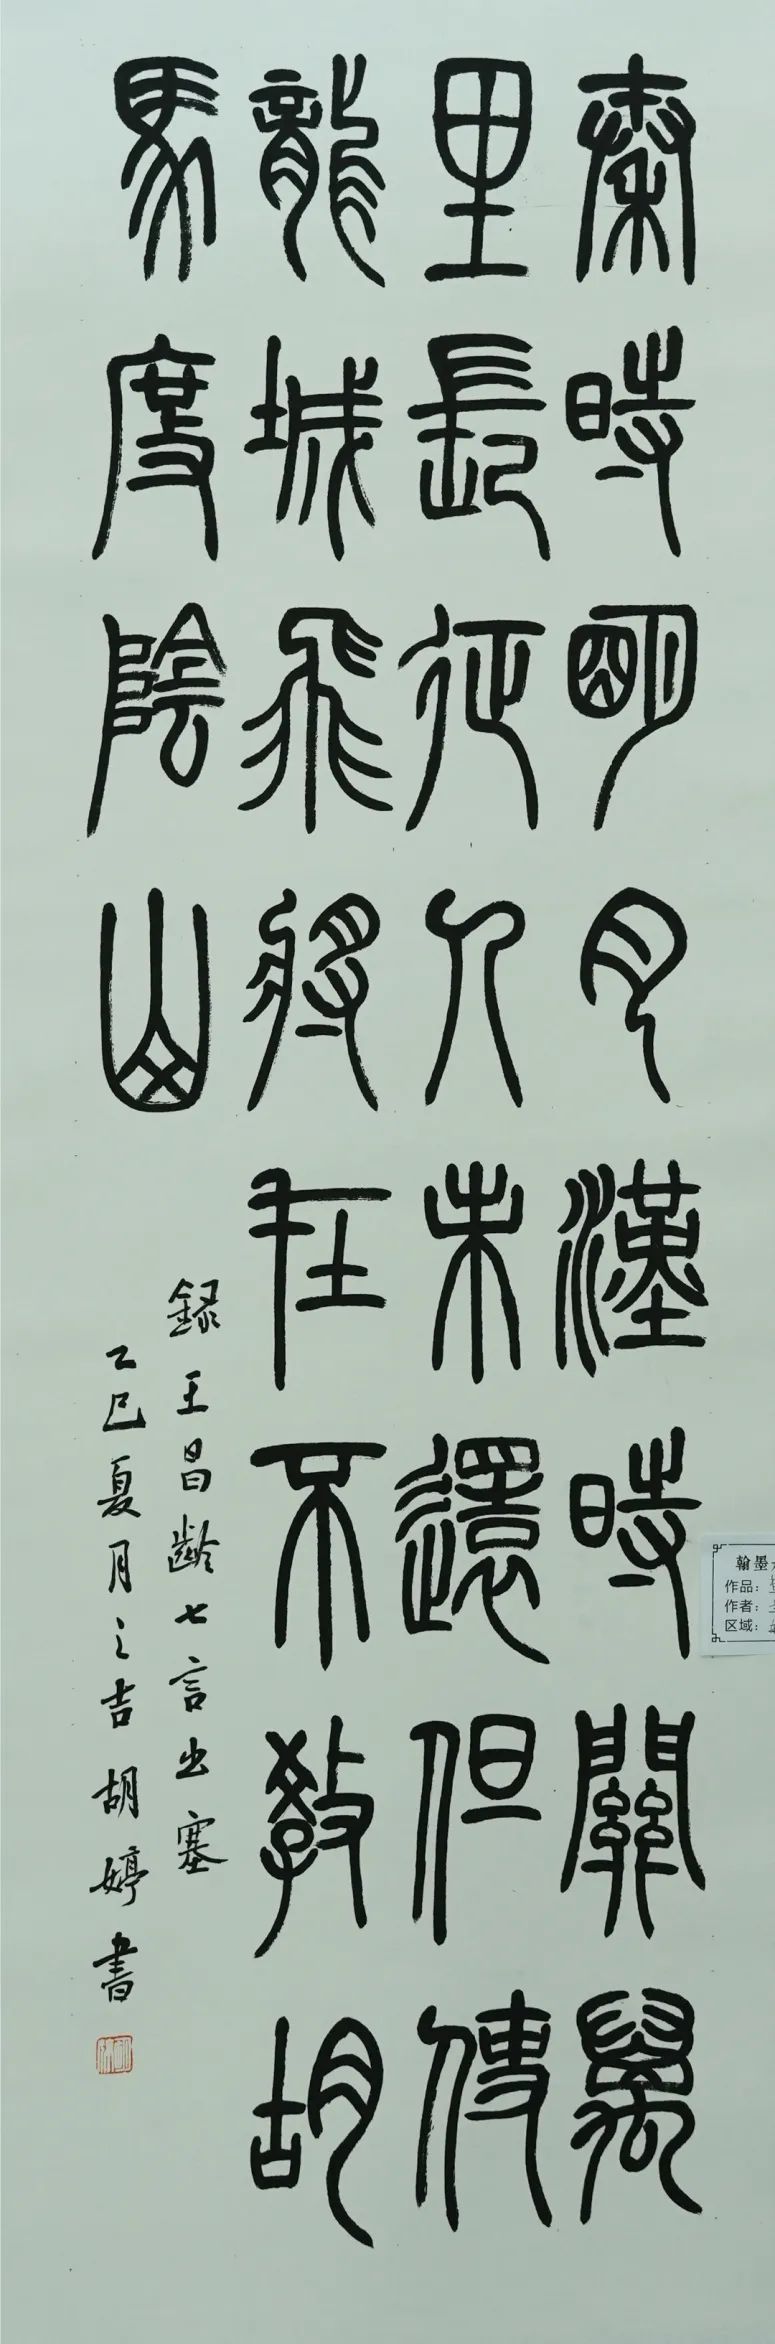 秦時明月漢時關萬
里長征人未還但使
龍城飛將在不教胡
馬度陰山
録王昌齡七言出塞
乙巳夏月之吉胡婷書
翰墨
作品：
作者：
区域：